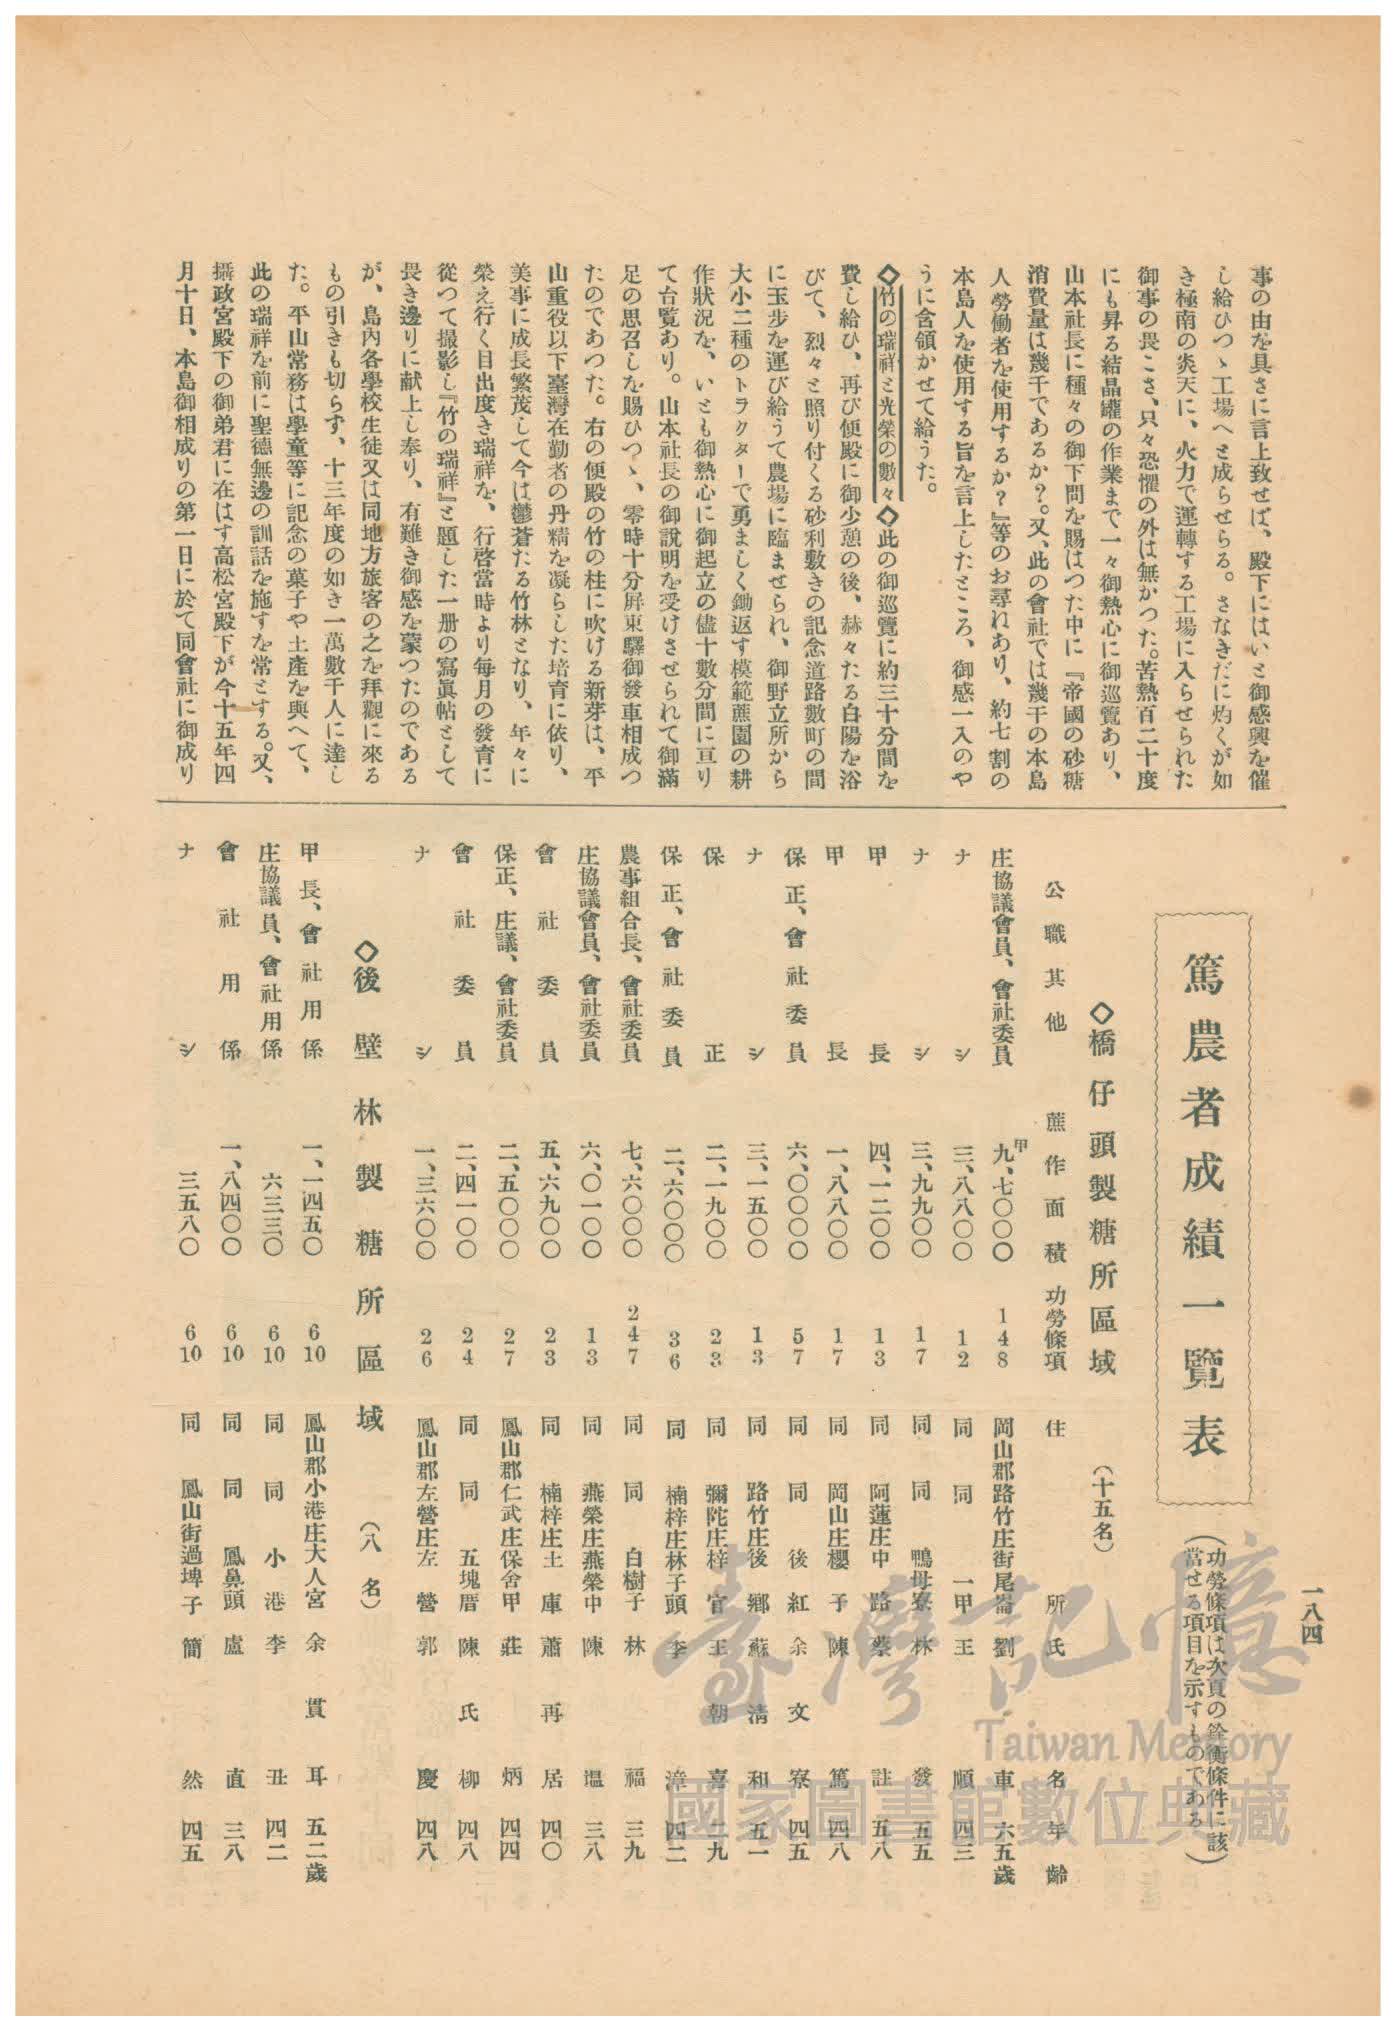 事の由を具さに言上致せば、殿下にはいと御感興を催
し給ひつゝ工場へと成らせらる。さなきだに灼くが如
き極南の炎天に、火力で運轉する工場に入らせられた
御事の畏こさ、只々恐懼の外は無かつた。苦熱百二十度
にも昇る結晶罐の作業まで一々御熱心に御巡覽あり、
山本社長に種々の御下問を賜はつた中に『帝國の砂糖
消費量は幾千であるか?。又、此の會社では幾千の本島
人勞働者を使用するか?』等のお尋れあり、約七割の
本島人を使用する旨を言上したところ、御感一入のや
うに含領かせて給うた。
◇竹の瑞祥と光榮の數々◇此の御巡覽に約三十分間を
費し給ひ、再び便殿に御少憩の後、赫々たる白陽を浴
びて、烈々と照り付くる砂利敷きの記念道路數町の間
に玉步を運び給うて農場に臨ませられ、御野立所から
大小二種のトラクターで勇ましく鋤返す模範蔗園の耕
作狀況を、いとも御熱心に御起立の儘十數分間に亘り
て台覽あり。山本社長の御說明を受けさせられて御滿
足の思召しを賜ひつゝ、零時十分屏東驛御發車相成つ
たのであつた。右の便殿の竹の柱に吹ける新芽は、平
山重役以下臺灣在勤者の丹精を凝らした培育に依り、
美事に成長繁茂して今は鬱蒼たる竹林となり、年々に
榮え行く目出度き瑞祥を、行啓當時より每月の發育に
從つて撮影し『竹の瑞祥』と題した一册の寫眞帖として
畏き邊りに献上し奉り、有難き御感を蒙つたのである
が、島內各學校生徒又は同地方旅客の之を拜觀に來る
もの引きも切らず、十三年度の如き一萬數千人に達し
た。平山常務は學童等に記念の菓子や土產を與へて、
此の瑞祥を前に聖德無邊の訓話を施すを常とする。又、
攝政宮殿下の御弟君に在はす高松宮殿下が今十五年四
月十日、本島御相成りの第一日に於て同會社に御成り
篤農者成績一覽表
(功勞條項は次頁の銓衡條件に該
當せる項目を示すものである)
◇橋仔頭製糖所區域 (十五名)
公職其他 蔗作面積 功勞條項 住所 氏名 年齡
庄協議會員、會社委員 九、七〇〇〇甲 148 岡山郡路竹庄街尾崙 劉車 六五歲
ナシ 三、八八〇〇 12 同 同 一甲 王順 四三
ナシ 三、九九〇〇 17 同 同 鴨母寮 林發 五五
甲長 四、一二〇〇 13 同 阿蓮庄中路 蔡註 五八
甲長 一、八八〇〇 17 同 岡山庄櫻子 陳篤 四八
保正、會社委員 六、〇〇〇〇 57 同 同 後紅 余文寮 四五
ナシ 三、一五〇〇 13 同 路竹庄後鄉 蘇清和 五一
保正 二、一九〇〇 23 同 彌陀庄梓官 王朝喜 九
保正、會社委員 二、六〇〇〇 36 同 楠梓庄林子頭 李漳 四二
農事組合長、會社委員 七、六〇〇〇 247 同 同 白樹子 林福 三九
庄協議會員、會社委員 六、〇一〇〇 13 同 燕巢庄燕巢中 陳塭 三八
會社委員 五、六九〇〇 23 同 楠梓庄土庫 蕭再居 四〇
保正、庄議、會社委員 二、五〇〇〇 27 鳳山郡仁武庄保舍甲 莊炳 四四
會社委員 二、四一〇〇 24 同 同 五塊厝 陳氏柳 四八
ナシ 一、三六〇〇 26 鳳山郡左營庄左營 郭慶 四八
◇後壁林製糖所區域 (八名)
甲長、會社用係 一、一四五〇 610 鳳山郡小港庄大人宮 余貫耳 五二歲
庄協議員、會社用係 六三三〇 610 同 同 小港 李丑 四二
會社用係 一、八四〇〇 610 同 同 鳳鼻頭 盧直 三八
ナシ 三五八〇 610 同 鳳山街過埤子 簡然 四五
一八四
臺灣記憶
Taiwan Memory
國家圖書館數位典藏